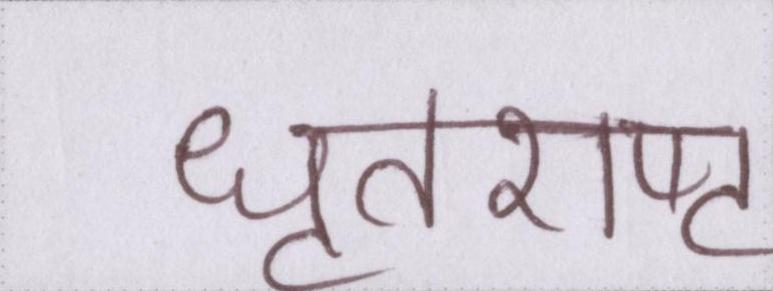 धृतराष्ट